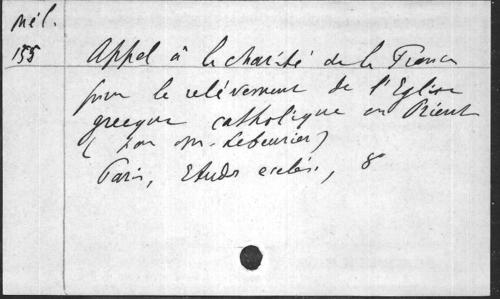 Mél.
155
Appel à la charité de la France
pour le relèvement de l'Eglise
grecque catholique en Orient
(par M. Lebeurier)
Paris, Etudes ecclés., 8°